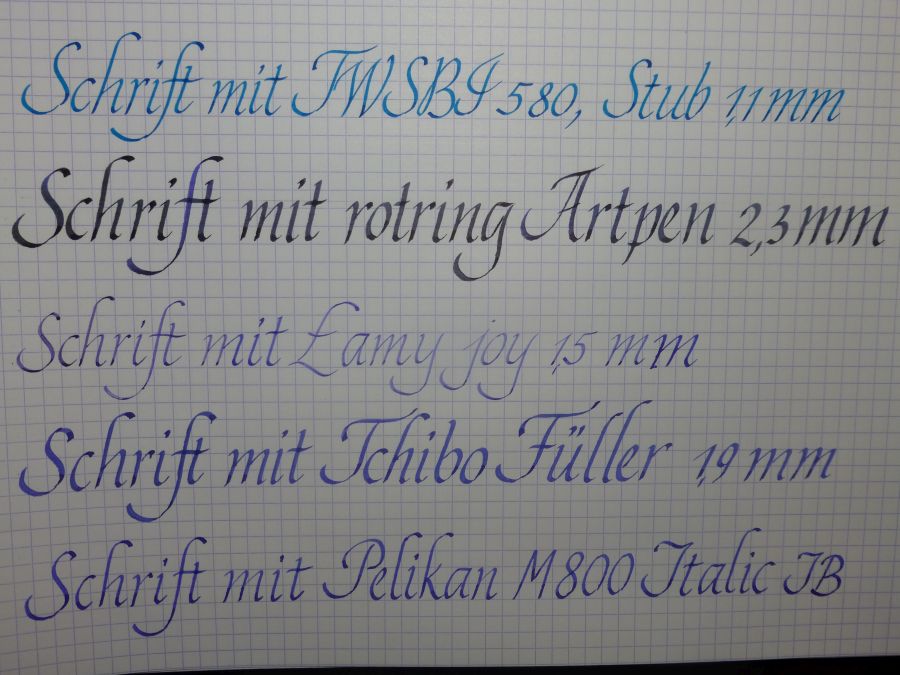 Schrift mit TWSBI 580, Stub 1,1 mm
Schrift mit rotring Artpen 2,3 mm
Schrift mit Lamy joy 1,5 mm
Schrift mit Tchibo Füller 1,9 mm
Schrift mit Pelikan M800 Italic IB